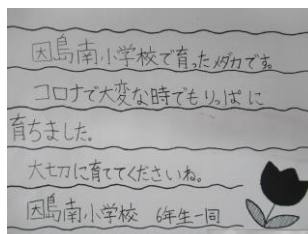 因島南小学校で育ったメダカです。
コロナで大変な時でもりっぱに
育ちました。
大切に育ててくださいね。
因島南小学校 6年生一同